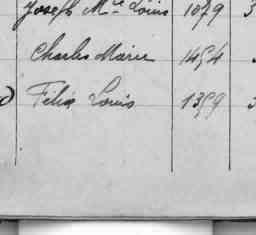 Joseph Mie Louis 1079 3
Charles Marie 1454
Félix Louis 1359 3